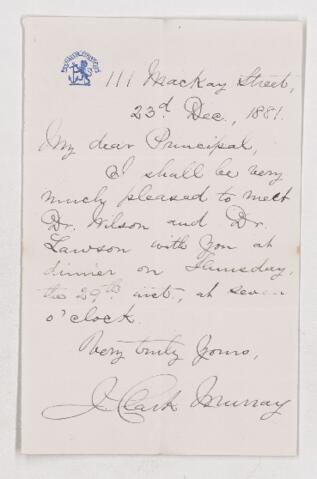 111 Mackay Street,
23d. Dec., 1881.
My dear Principal,
I shall be very
much pleased to meet
Dr. Wilson and Dr.
Lawson with you at
dinner on Thursday,
the 29th inst., at seven
o'clock.
Very truly Yours,
J. Clark Murray